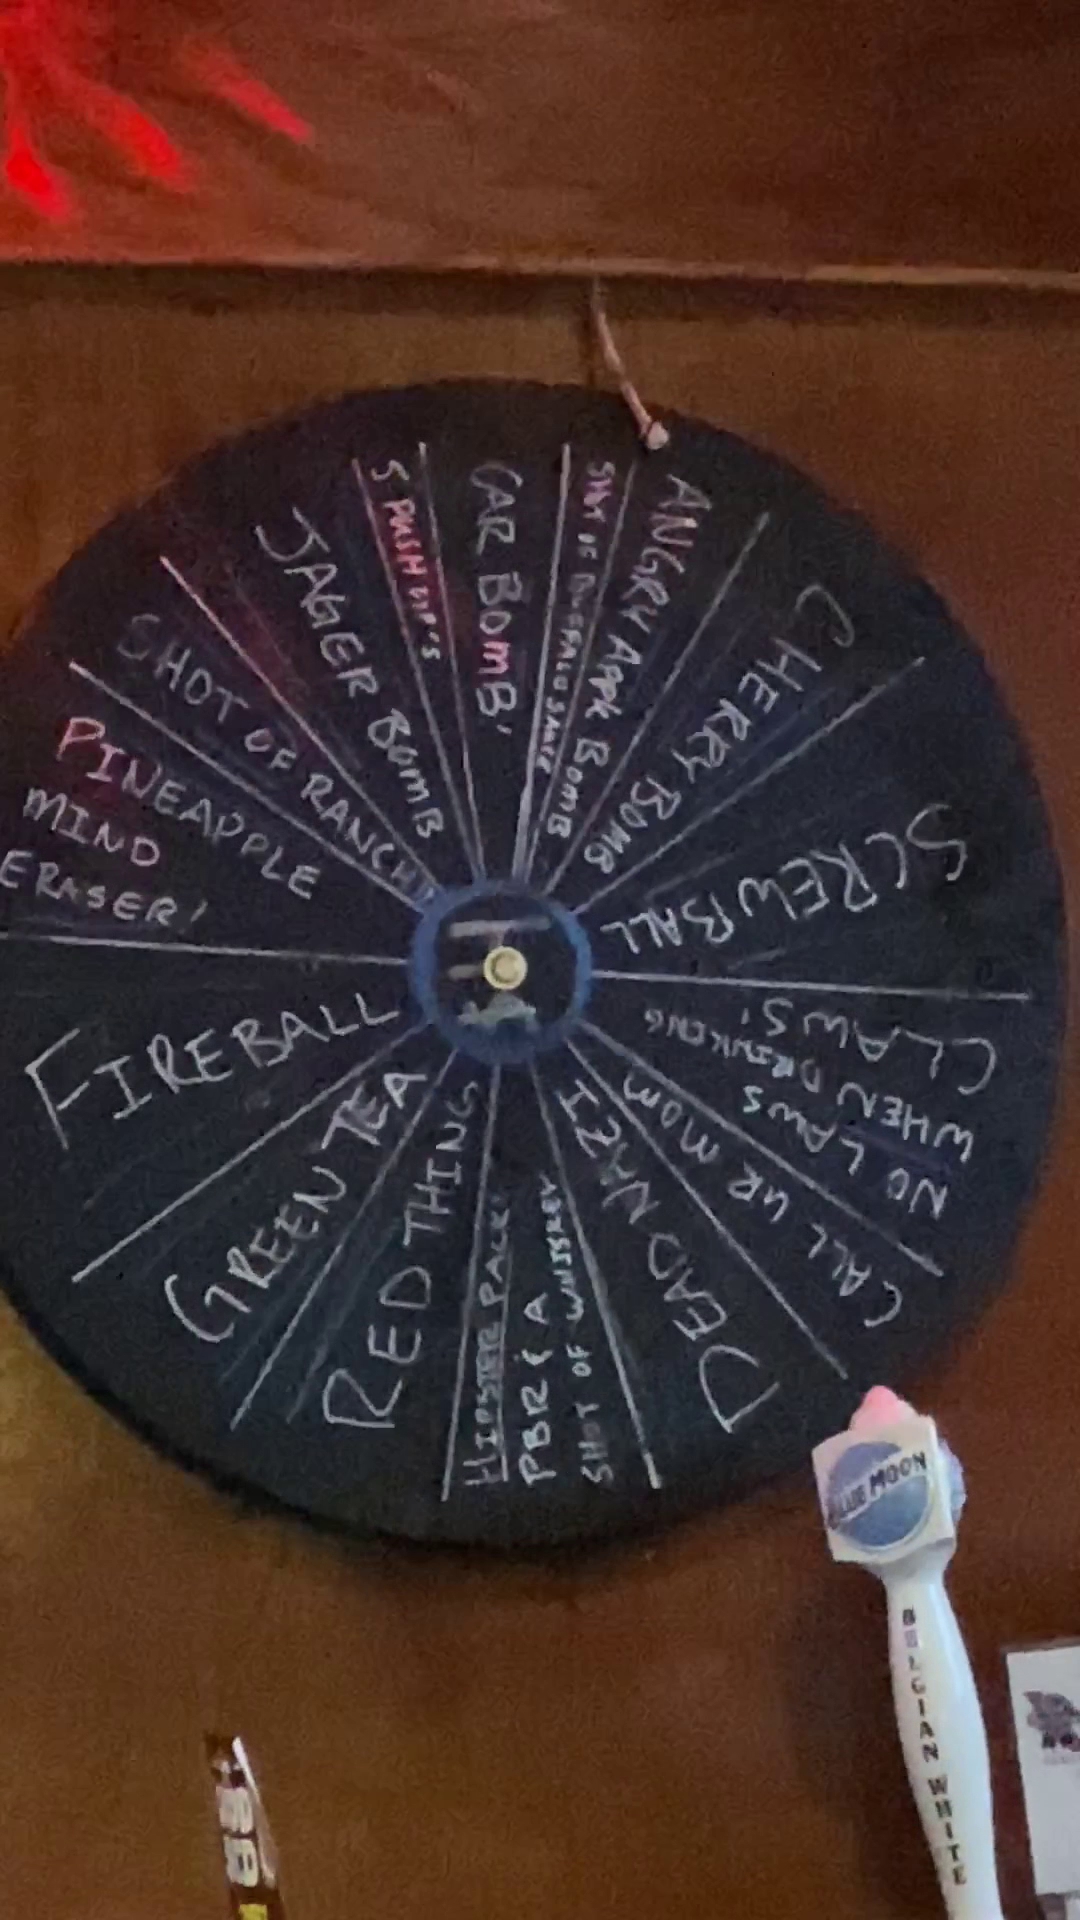 CAR BOMB!
SHOT OF BUFFALO SAUCE
ANGRY APPLE BOMB
CHERRY BOMB
SCREWBALL
NO LAWS
WHEN DRINKING
CLAWS!
CALL UR MOM
DEAD NAZI
HIPSTER PACK!
PBR & A
SHOT OF WHISKEY
RED THING
GREEN TEA
FIREBALL
PINEAPPLE
MIND
ERASER!
SHOT OF RANCH!
JAGER BOMB
5 PUSH UP'S
BLUE MOON
BELGIAN WHITE